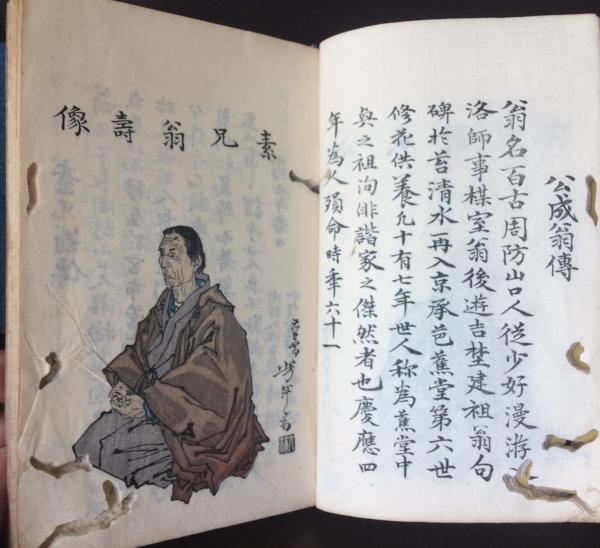 公成翁傳
翁名百古周防山口人從少好漫游
洛師事楳室翁後遊吉埜建祖翁句
碑於苔清水再入京承芭蕉堂第六世
修花供養凡十有七年世人称為蕉堂中
興之祖洵俳諧家之傑然者也慶應四
年為人殞命時年六十一
素兄翁壽像